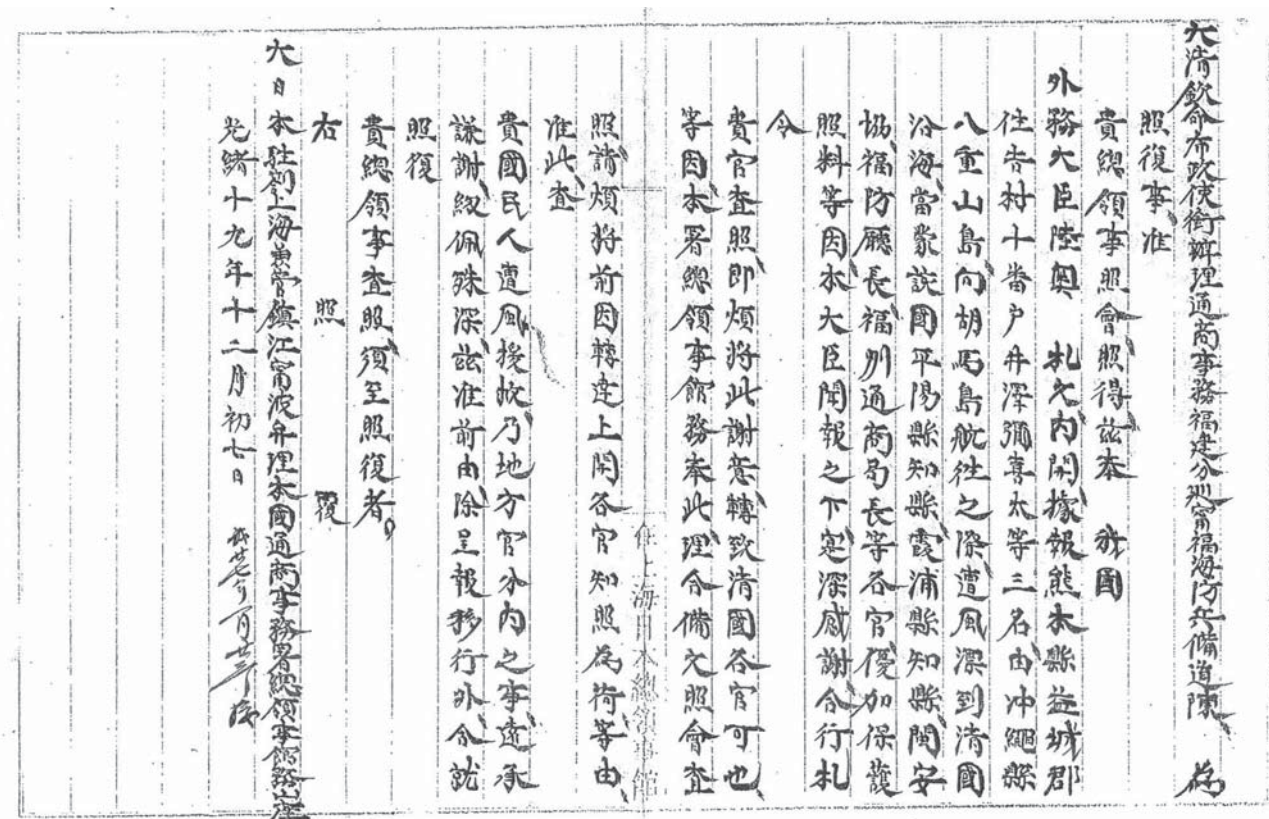 大清欽命布政使銜辦理通商事務福建分巡甯福海防兵備道陳 為
照復事准
貴總領事照會照得茲奉 我國
外務大臣陸奧 札文內開據報熊本縣益城郡
住吉村十番戶井澤彌喜太等三名由冲繩縣
八重山島向胡馬島航往之際遭風漂到清國
沿海當蒙該國平陽縣知縣霞浦縣知縣閩安
協福防廳長福州通商局長等各官優加保護
照料等因本大臣聞報之下寔深感謝合行札
令
貴官查照即煩將此謝意轉致清國各官可也
等因本署總領事館務奉此理合備文照會查
照請煩將前因轉達上開各官知照為荷等由
准此查
貴國民人遭風援救乃地方官分內之事遠承
謙謝紉佩殊深茲准前由除呈報移行外合就
照復
貴總領事查照須至照復者
右 照 覆
大日本駐劄上海兼管鎮江甯波并理本國通商事務署總領事館務
光緒十九年十二月初七日
在上海日本總領事館